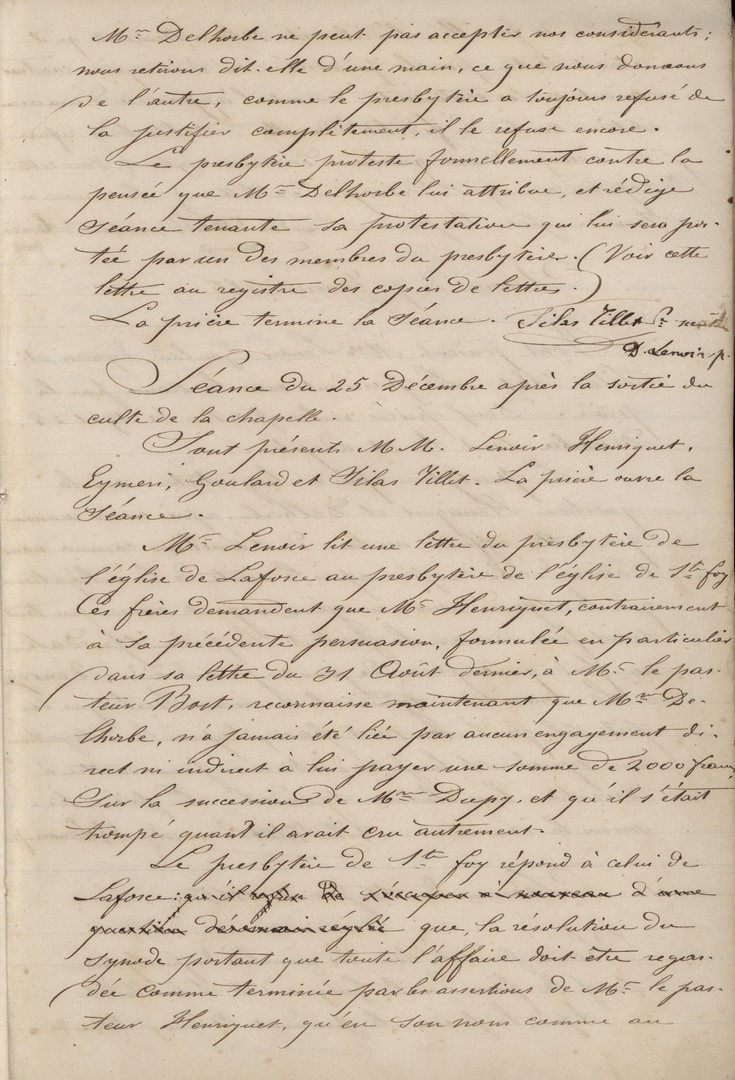 Mme Delhorbe ne peut pas accepter nos considérants;
nous retirons dit-elle d'une main, ce que nous donnons
de l'autre, comme le presbytère a toujours refusé de
la justifier complètement, il le refuse encore.
Le presbytère proteste formellement contre la
pensée que Mme Delhorbe lui attribue, et rédige
séance tenante sa protestation qui lui sera por-
tée par un des membres du presbytère. (Voir cette
lettre au registre des copies de lettres.)
La prière termine la séance. Silas Villet
D. Lenoir p.
Séance du 25 Décembre après la sortie du
culte de la chapelle.
Sont présents M M. Lenoir Henriquet,
Eymeri, Goulard et Silas Villet. La prière ouvre la
séance.
Mr Lenoir lit une lettre du presbytère de
l'église de Laforce au presbytère de l'église de Ste foy
Ces frères demandent que Mr Henriquet, contrairement
à sa précédente persuasion, formulée en particulier
dans sa lettre du 31 Août dernier, à Mr le pas-
teur Bost, reconnaisse maintenant que Mme De-
lhorbe, n'a jamais été liée par aucun engagement di-
rect ni indirect à lui payer une somme de 2000 francs
sur la succession de Mme Dupy, et qu'il s'était
trompé quand il avait cru autrement.
Le presbytère de Ste foy répond à celui de
Laforce: qu'il refuse de s'occuper à nouveau d'une
question désormais réglée que, la résolution du
synode portant que toute l'affaire doit être regar-
dée comme terminée par les assertions de Mr le pas-
teur Henriquet, qu'en son nom comme au